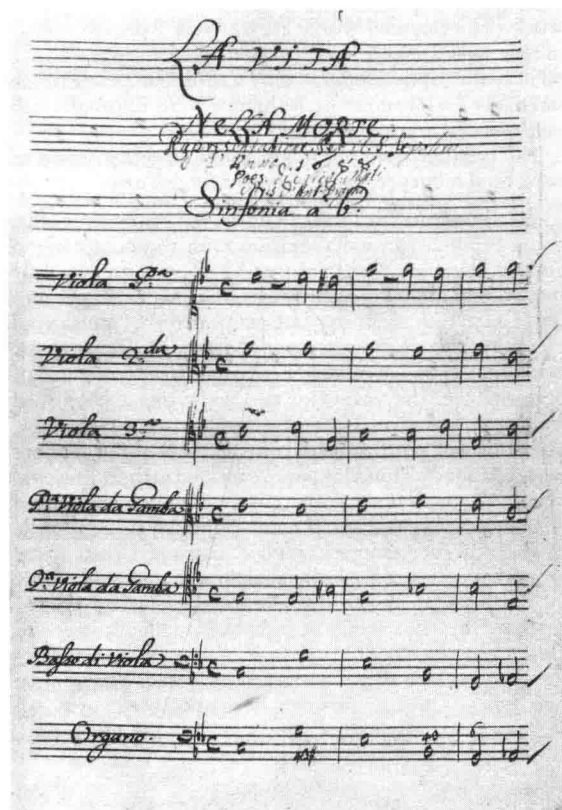 LA VITA
NELLA MORTE
Sinfonia a 6.
Viola Pra
Viola 2.da
Viola 3.a
Pra Viola da Gamba
2.a Viola da Gamba
Basso di Viola
Organo.